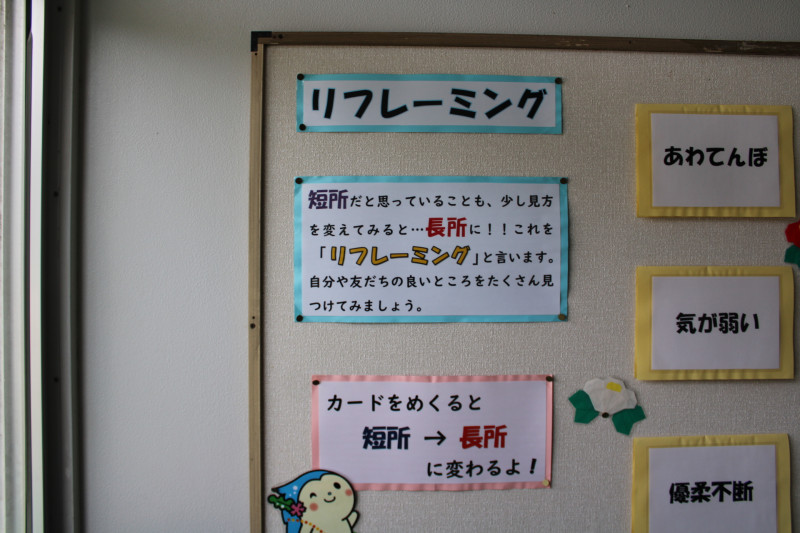 リフレーミング
短所だと思っていることも、少し見方
を変えてみると…長所に！！これを
「リフレーミング」と言います。
自分や友だちの良いところをたくさん見
つけてみましょう。
カードをめくると
短所 → 長所
に変わるよ！
あわてんぼ
気が弱い
優柔不断